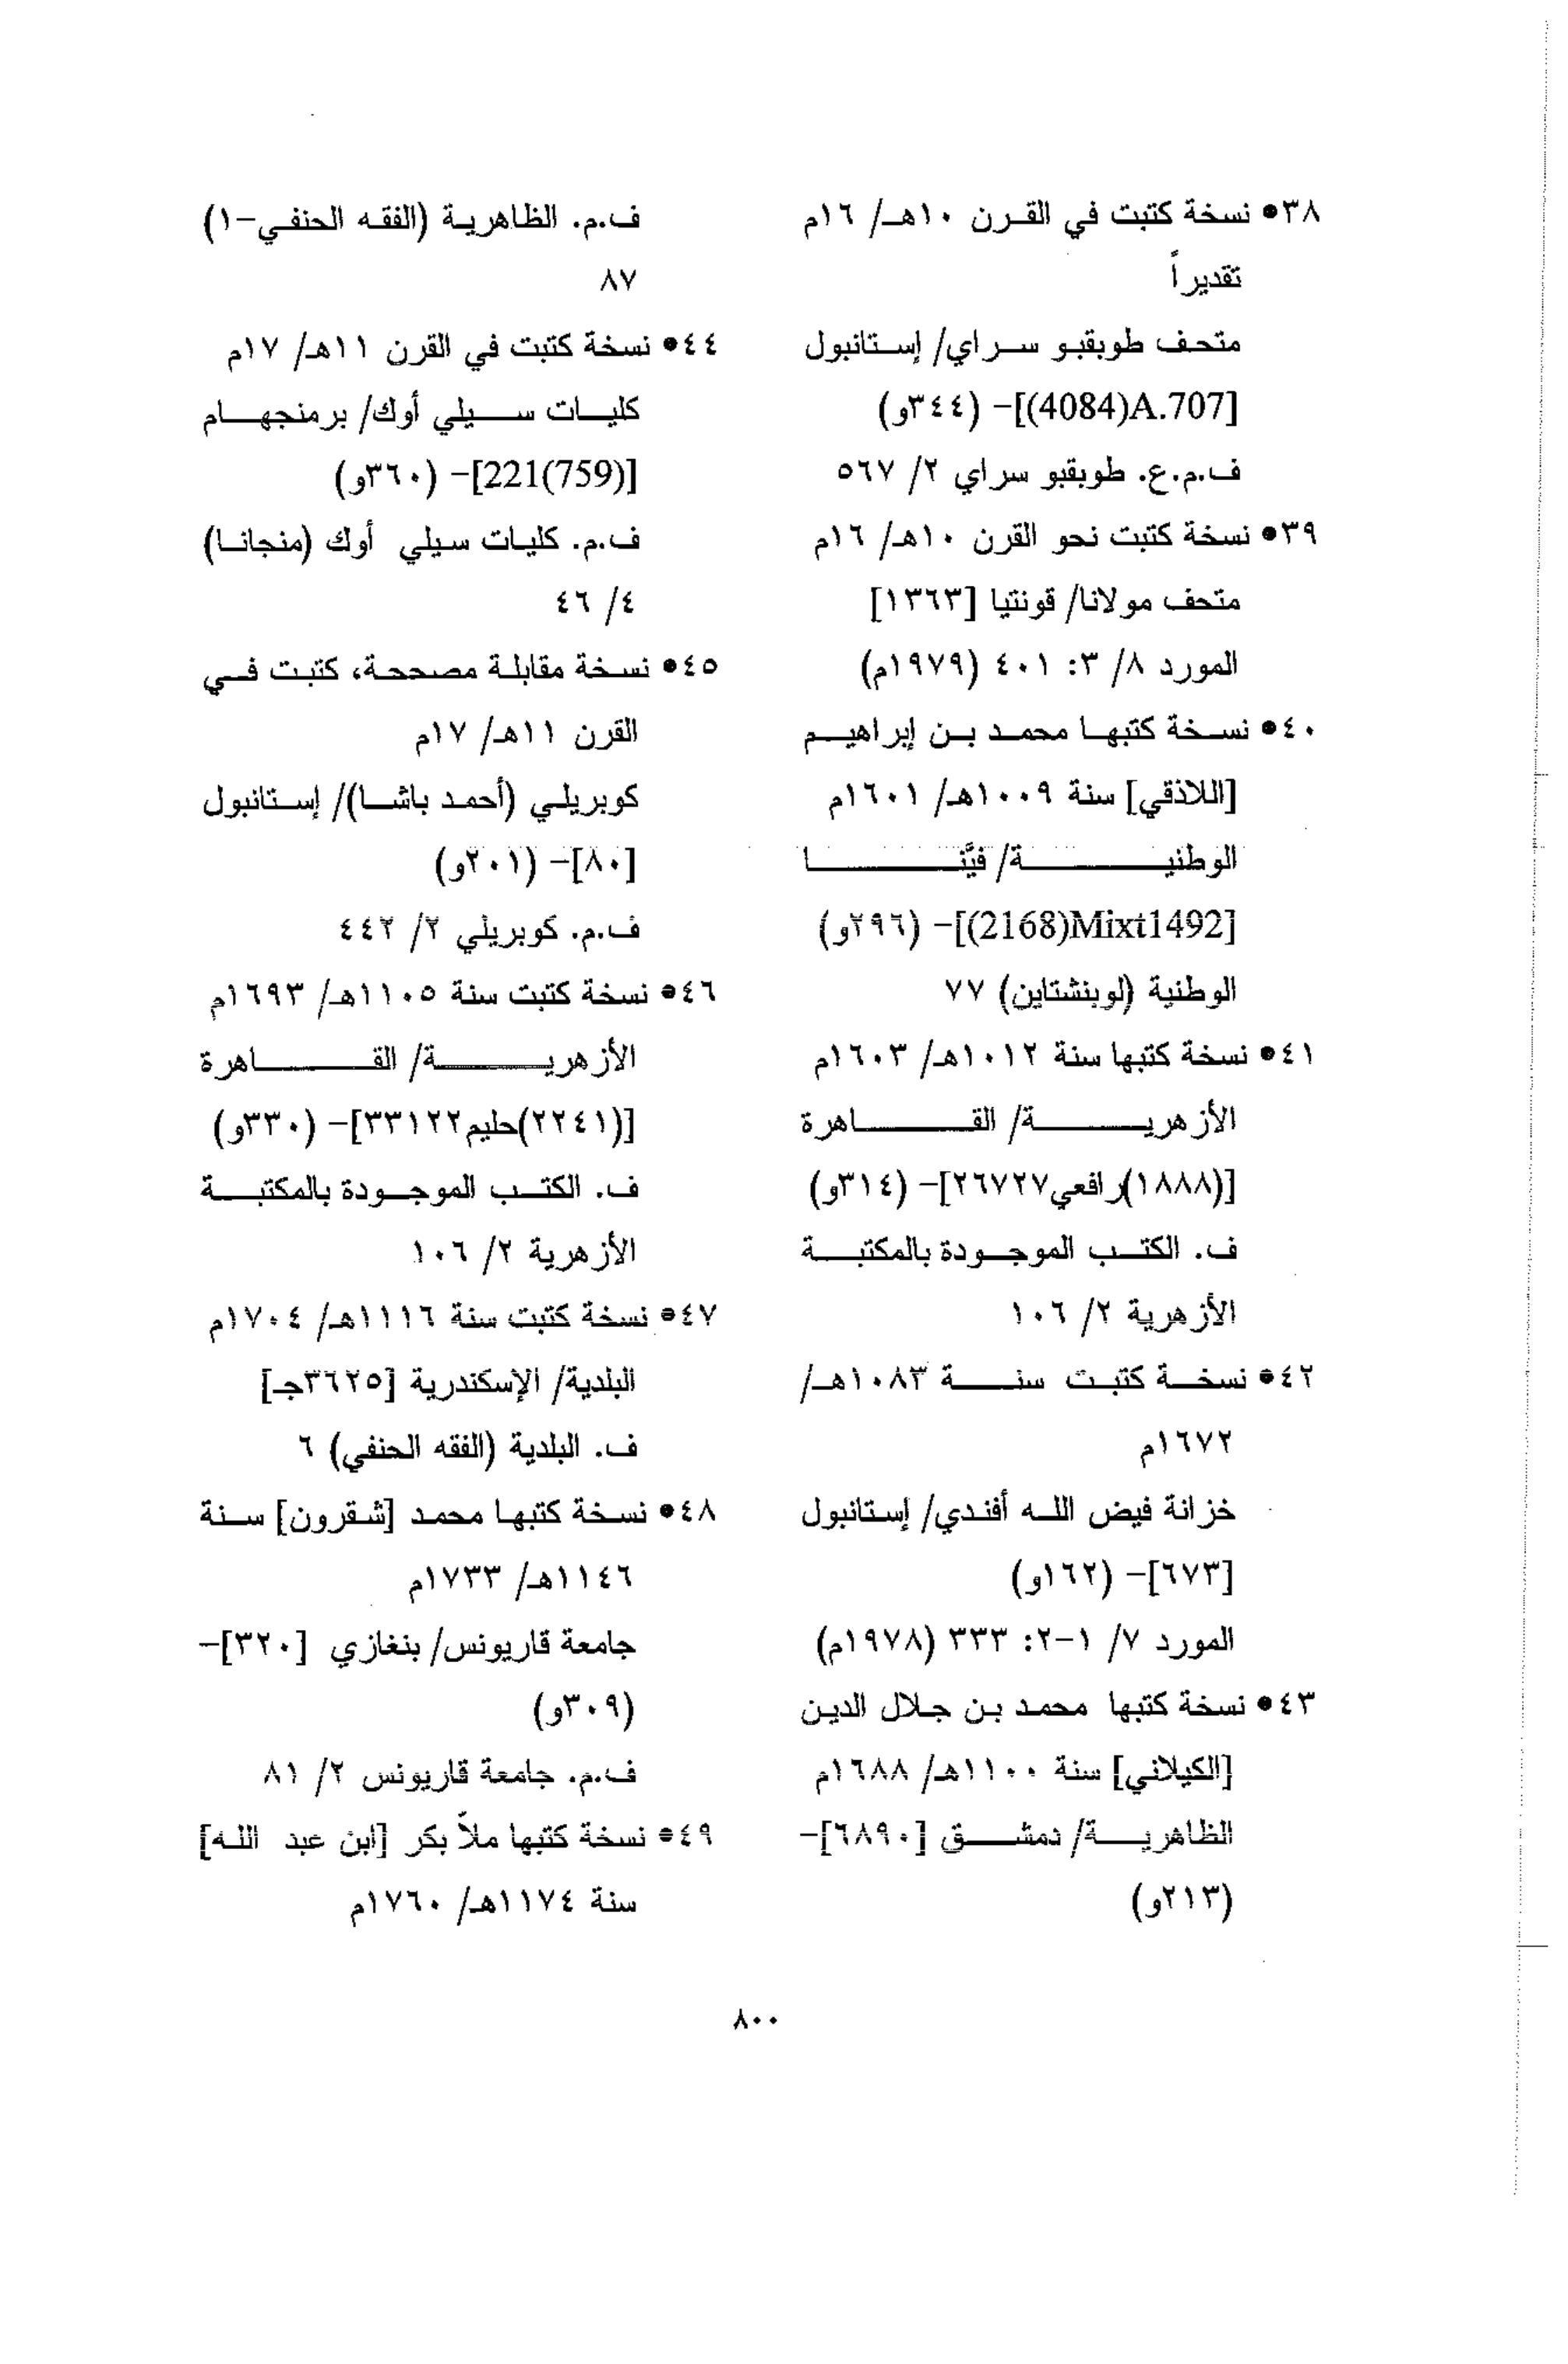 ٣٨• نسخة كتبت في القرن ١٠هـ/ ١٦م
تقديراً
متحف طوبقبو سراي/ إستانبول
[A.707(4084)]- (٣٤٤و)
ف.م.ع. طوبقبو سراي ٢/ ٥٦٧
٣٩• نسخة كتبت نحو القرن ١٠هـ/ ١٦م
متحف مولانا/ قونتيا [١٣٦٣]
المورد ٨/ ٣: ٤٠١ (١٩٧٩م)
٤٠• نسخة كتبها محمد بن إبراهيم
[اللاذقي] سنة ١٠٠٩هـ/ ١٦٠١م
الوطنية/ فيَّنا
[Mixt1492(2168)]- (٢٩٦و)
الوطنية (لوبنشتاين) ٧٧
٤١• نسخة كتبها سنة ١٠١٢هـ/ ١٦٠٣م
الأزهرية/ القاهرة
[(١٨٨٨)رافعي٢٦٧٢٧]- (٣١٤و)
ف. الكتب الموجودة بالمكتبة
الأزهرية ٢/ ١٠٦
٤٢• نسخة كتبت سنة ١٠٨٣هـ/
١٦٧٢م
خزانة فيض الله أفندي/ إستانبول
[٦٧٣]- (١٦٢و)
المورد ٧/ ١-٢: ٣٣٣ (١٩٧٨م)
٤٣• نسخة كتبها محمد بن جلال الدين
[الكيلاني] سنة ١١٠٠هـ/ ١٦٨٨م
الظاهرية/ دمشق [٦٨٩٠]-
(٢١٣و)
ف.م. الظاهرية (الفقه الحنفي-١)
٨٧
٤٤• نسخة كتبت في القرن ١١هـ/ ١٧م
كليات سيلي أوك/ برمنجهام
[221(759)]- (٣٦٠و)
ف.م. كليات سيلي أوك (منجانا)
٤/ ٤٦
٤٥• نسخة مقابلة مصححة، كتبت في
القرن ١١هـ/ ١٧م
كوبريلي (أحمد باشا)/ إستانبول
[٨٠]- (٢٠١و)
ف.م. كوبريلي ٢/ ٤٤٢
٤٦• نسخة كتبت سنة ١١٠٥هـ/ ١٦٩٣م
الأزهرية/ القاهرة
[(٢٢٤١)حليم٣٣١٢٢]- (٣٣٠و)
ف. الكتب الموجودة بالمكتبة
الأزهرية ٢/ ١٠٦
٤٧• نسخة كتبت سنة ١١١٦هـ/ ١٧٠٤م
البلدية/ الإسكندرية [٣٦٢٥جـ]
ف. البلدية (الفقه الحنفي) ٦
٤٨• نسخة كتبها محمد [شقرون] سنة
١١٤٦هـ/ ١٧٣٣م
جامعة قاريونس/ بنغازي [٣٢٠]-
(٣٠٩و)
ف.م. جامعة قاريونس ٢/ ٨١
٤٩• نسخة كتبها ملاّ بكر [ابن عبد الله]
سنة ١١٧٤هـ/ ١٧٦٠م
٨٠٠